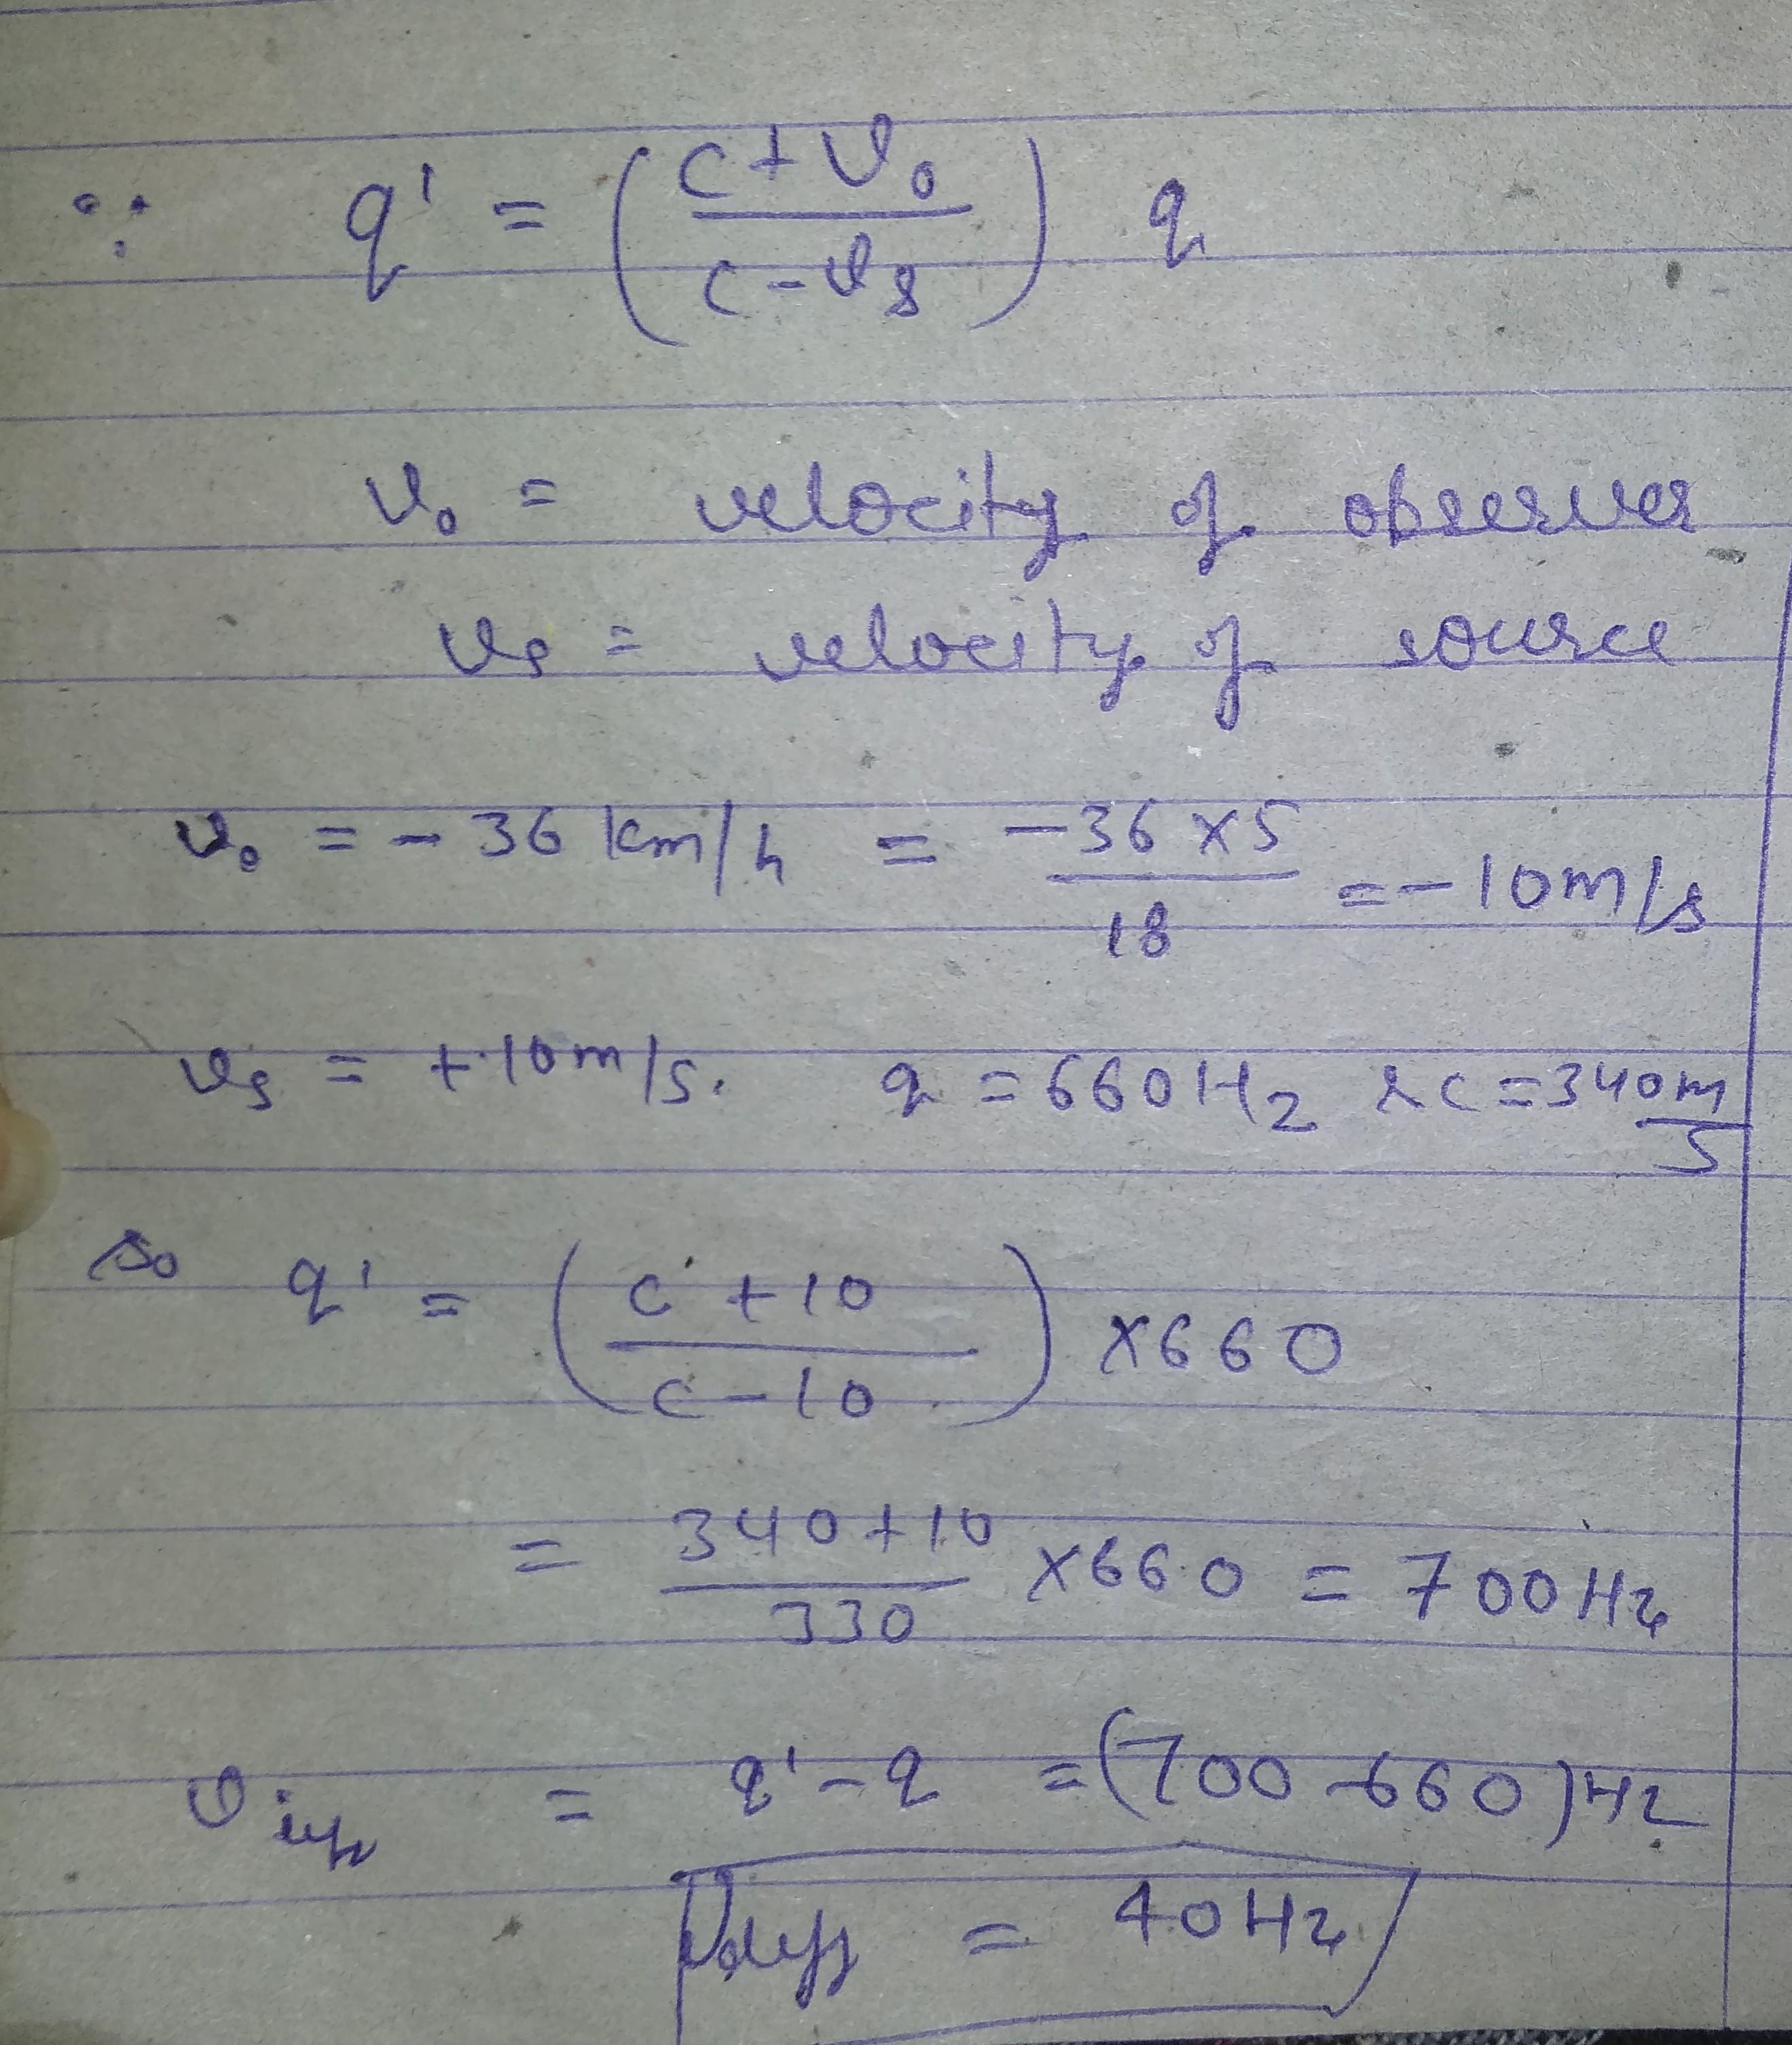 ∵ q' = ( (c + v₀) / (c - vₛ) ) q
v₀ = velocity of observer
vₛ = velocity of source
v₀ = - 36 km/h = (-36 × 5) / 18 = - 10 m/s
vₛ = + 10 m/s. q = 660 Hz & c = 340 m/s
so q' = ( (c + 10) / (c - 10) ) × 660
= (340 + 10) / 330 × 660 = 700 Hz
= q' - q = (700 - 660) Hz
= 40 Hz